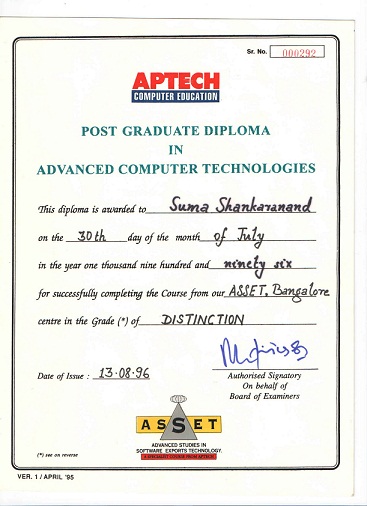 Sr. No. 000292
APTECH
COMPUTER EDUCATION
POST GRADUATE DIPLOMA
IN
ADVANCED COMPUTER TECHNOLOGIES
This diploma is awarded to Suma Shankaranand
on the 30th day of the month of July
in the year one thousand nine hundred and ninety six
for successfully completing the Course from our ASSET, Bangalore
centre in the Grade (*) of DISTINCTION
Date of Issue : 13·08·96
Authorised Signatory
On behalf of
Board of Examiners
ASSET
ADVANCED STUDIES IN
SOFTWARE EXPORTS TECHNOLOGY
A SPECIALIST COURSE FROM APTECH
(*) see on reverse
VER. 1 / APRIL '95